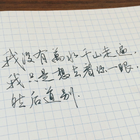 我没有万水千山走遍
我只是想去看你一眼
然后道别